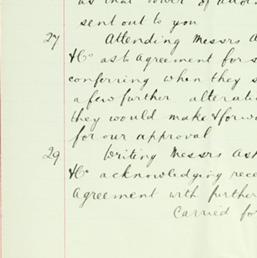 as that Power of Atto
sent out to you
27 Attending Messrs A
&Co as to Agreement for s
conferring when they s
a few further alterati
they would make & forw
for our approval
29 Writing Messrs Ash
&Co acknowledging rece
Agreement with further
Carried fo